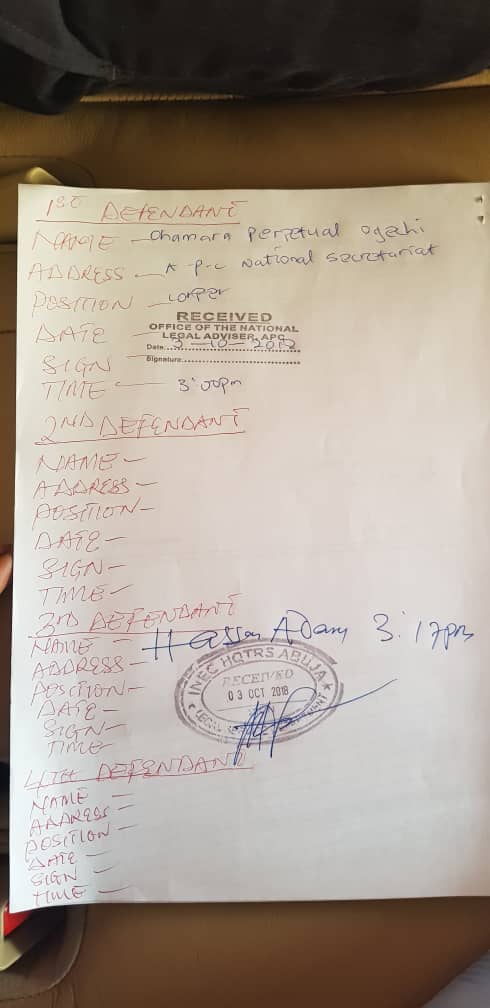 1ST DEFENDANT
NAME - Chamara perpetual ogechi
ADDRESS - A p.c National secretariat
POSITION - corper
RECEIVED
OFFICE OF THE NATIONAL
LEGAL ADVISER, APC
DATE - Date: 3-10-2018
SIGN Signature:
TIME - 3:00pm
2ND DEFENDANT
NAME -
ADDRESS -
POSITION -
DATE -
SIGN -
TIME -
3RD DEFENDANT
NAME - Hassan Adamu 3:17pm
ADDRESS -
POSITION -
DATE -
SIGN -
TIME
INEC HQTRS ABUJA
RECEIVED
03 OCT 2018
LEGAL
4TH DEFENDANT
NAME -
ADDRESS -
POSITION -
DATE -
SIGN -
TIME -